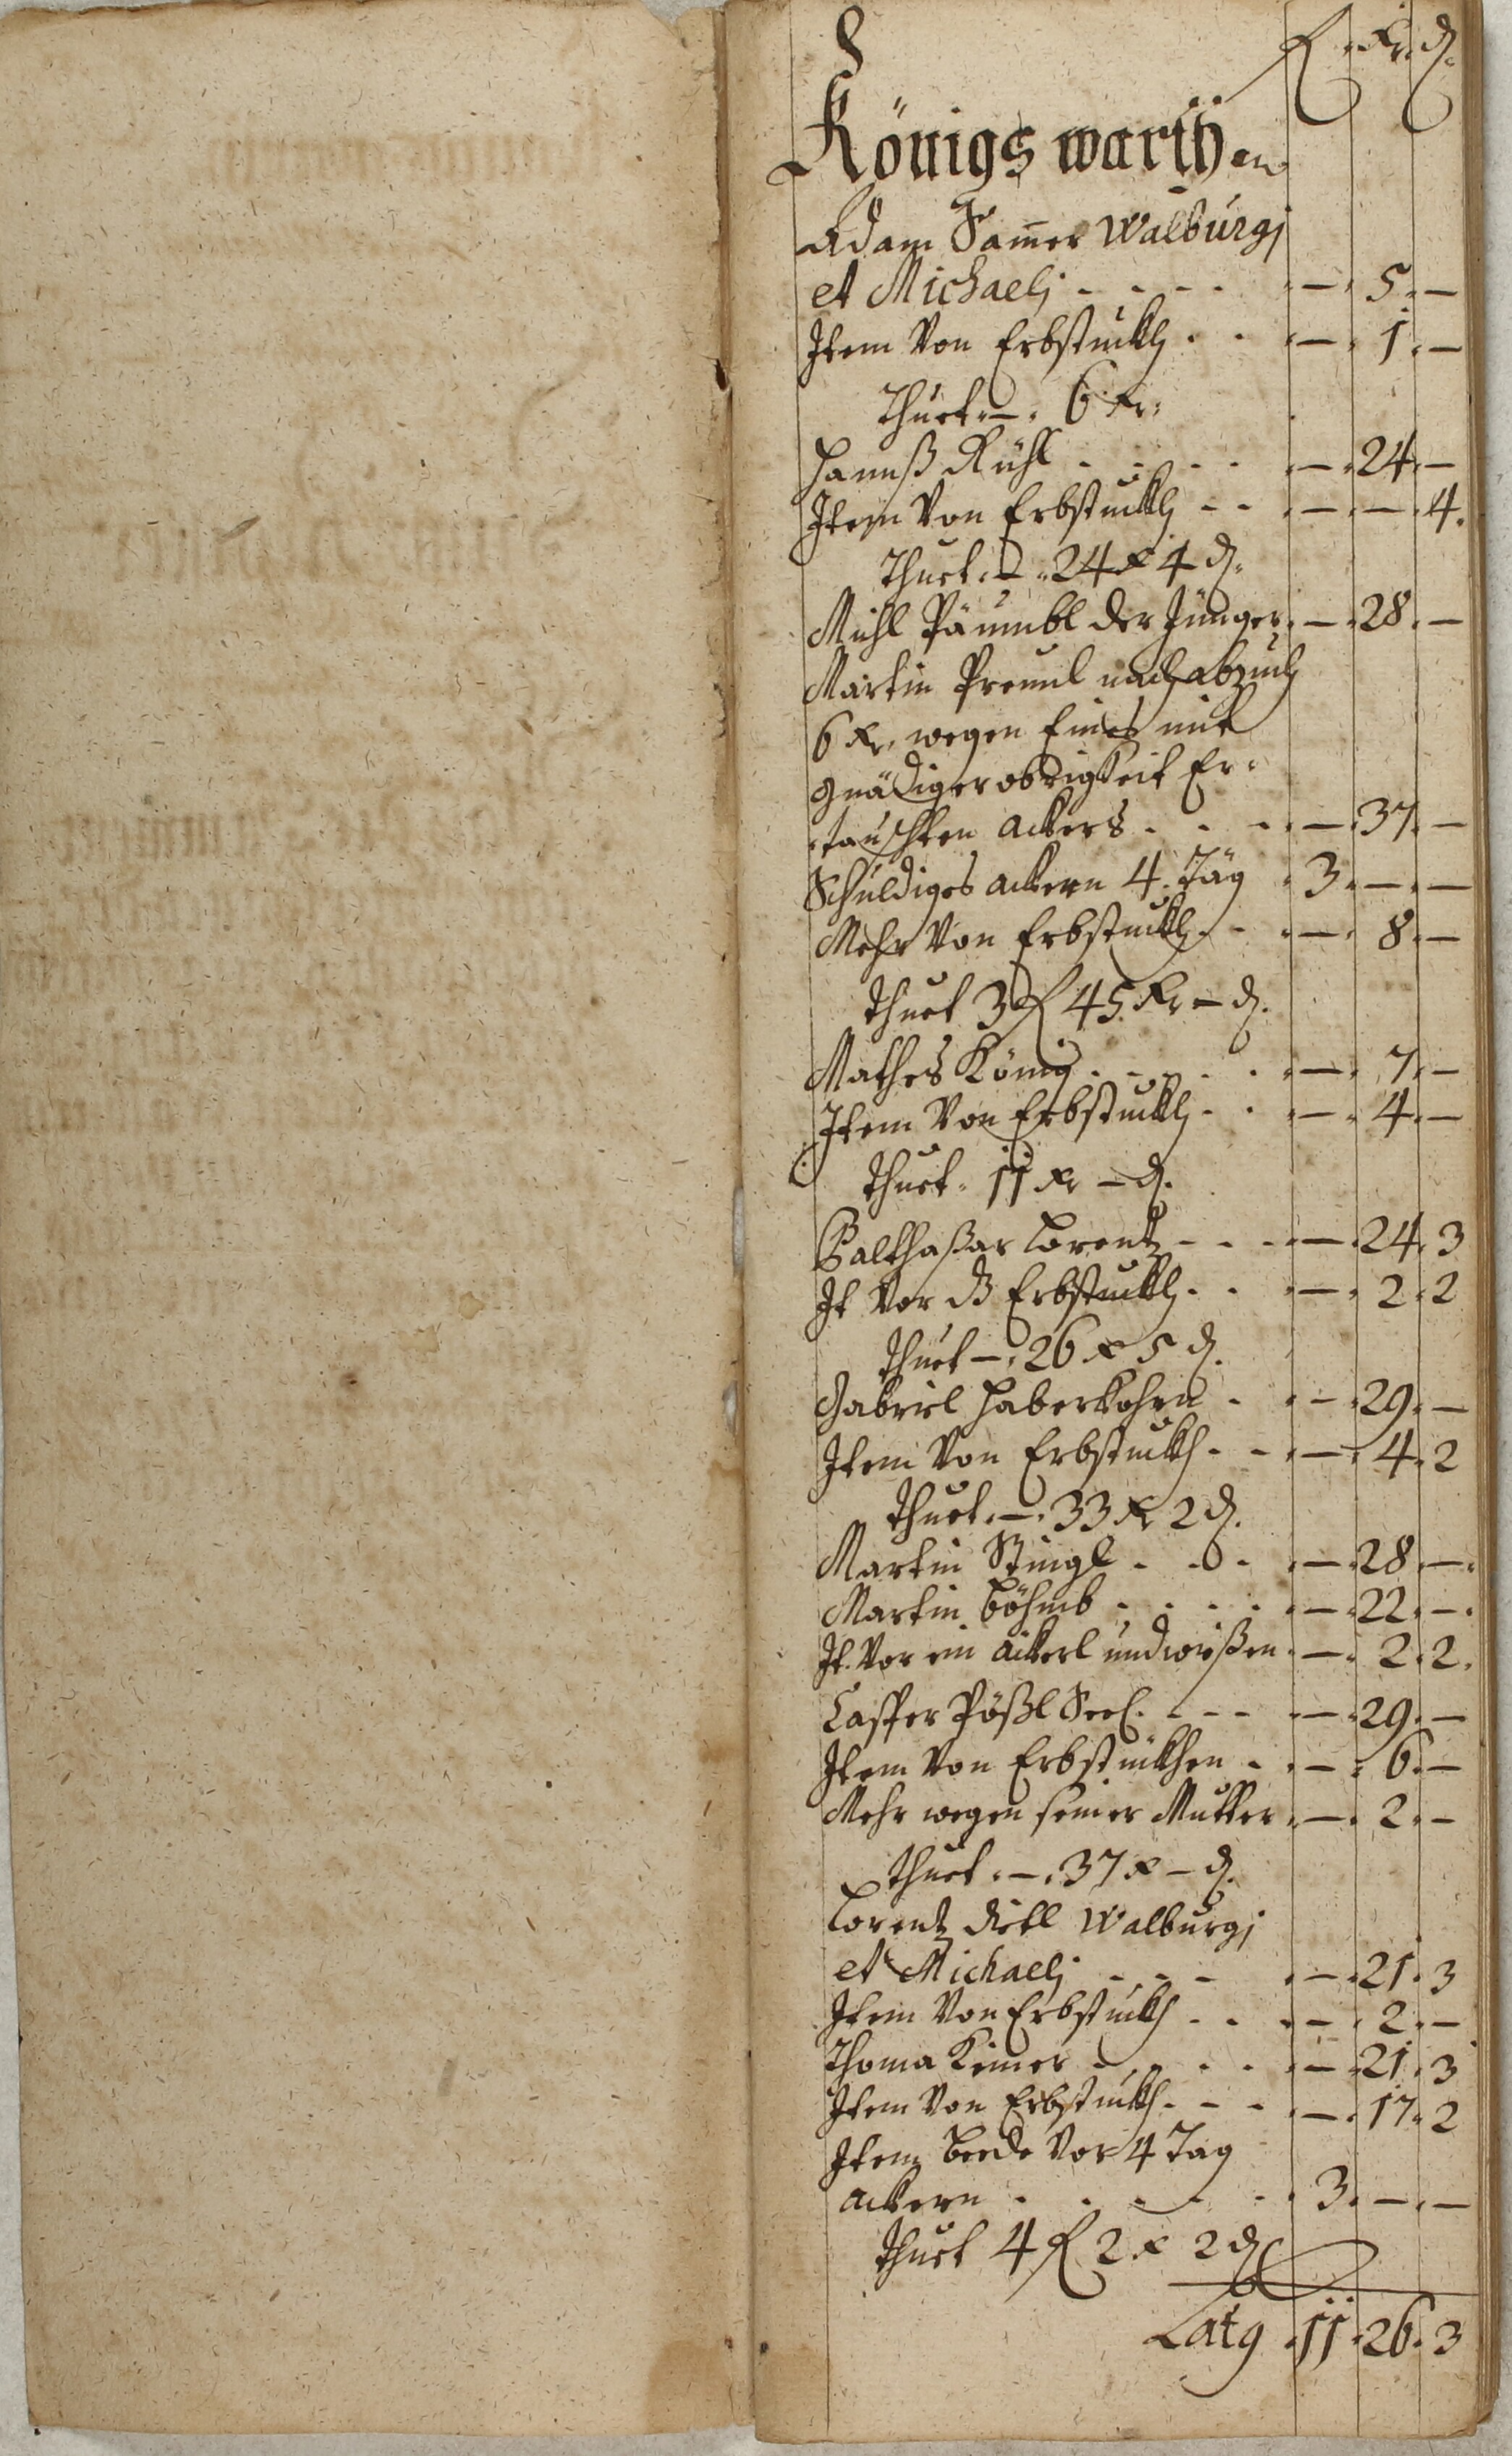 8
f. kr. d.
Königs warth en
Adam Sam̄er Walburgj
et Michaelj - - - - — 5. —
Item Von Erbstuckh . . — 1. —
Thuet. —. 6 kr.
Hannß Rühl - - - - — 24. —
Item Von Erbstuckh - - — — 4.
Thuet. —. 24 x 4 d.
Michl Päumbl der Jünger. — 28. —
Martin Preinl nach abzuch
6 kr. wegen Eines mit
gnädiger obrigkeit Er-
tauschten ackers. - - — 37. —
Schuldiges ackern 4. Täg 3. — —
Mehr Von Erbstuckh. - — 8. —
Thuet 3 f 45. kr — d.
Mathes König. - - - . — 7. —
Item Von Erbstuckh - . — 4. —
Thuet. 11 kr — d.
Balthaßar Lorentz - - - — 24. 3
It Vor d Erbstuckh. . — 2. 2
Thuet —. 26 x 5 d.
Gabriel Haberkohrn . — 29. —
Item Von Erbstuckh. - — 4. 2
Thuet. —. 33 kr 2 d.
Martin Stingl - - - — 28. —.
Martin Böhmb - - - . — 22. —.
It. Vor ein äckerl und wießen. — 2. 2.
Casper Pößl Seel. - - - — 29. —
Item Von Erbstuckhen - — 6. —
Mehr wegen seiner Mutter. — 2. —
Thuet. —. 37 x — d.
Lorentz dietl Walburgj
et Michaelj - - - — 21. 3
Item Von Erbstuckh . . — 2. —
Thoma Keiner - - - . — 21. 3
Item Von Erbstuckh. - - — 17. 2
Item beede Vor 4 Tag
ackern . . - - . 3. —. —
Thuet 4 f 2 x 2 d
Latg 11. 26. 3